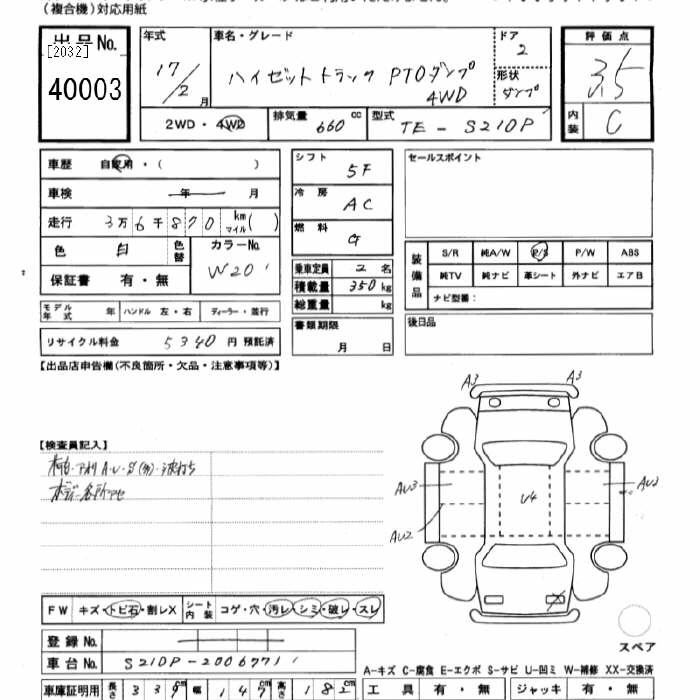 (複合機)対応用紙
出品No.
[2032]
40003
年式 車名・グレード ドア
17/2月 ハイゼットトラック PTOダンプ 4WD 2
形状 ダンプ
2WD・4WD 排気量 660 cc 型式 TE-S210P
評価点
3.5
内装 C
車歴 自家用・( )
車検 年 月
走行 3万6千870 km マイル( )
色 白 色替 カラーNo. W20
保証書 有・無
モデル年式 年 ハンドル 左・右 ディーラー・並行
リサイクル料金 5340 円 預託済
シフト 5F
冷房 AC
燃料 G
乗車定員 2名
積載量 350kg
総重量 kg
書類期限
月 日
セールスポイント
装備品 S/R 純A/W P/S P/W ABS
純TV 純ナビ 革シート 外ナビ エアB
ナビ型番:
後日品
【出品店申告欄(不良箇所・欠品・注意事項等)】
【検査員記入】
ボディ各所アセ
A3 A3
AU3 U4
AU2
FW キズ・トビ石・割レX シート内装 コゲ・穴・汚レ・シミ・破レ・スレ
登録No.
車台No. S210P-2006771
車庫証明用 長さ 339cm 幅 147cm 高さ 182cm
スペア
A-キズ C-腐食 E-エクボ S-サビ U-凹ミ W-補修 XX-交換済
工具 有・無 ジャッキ 有・無